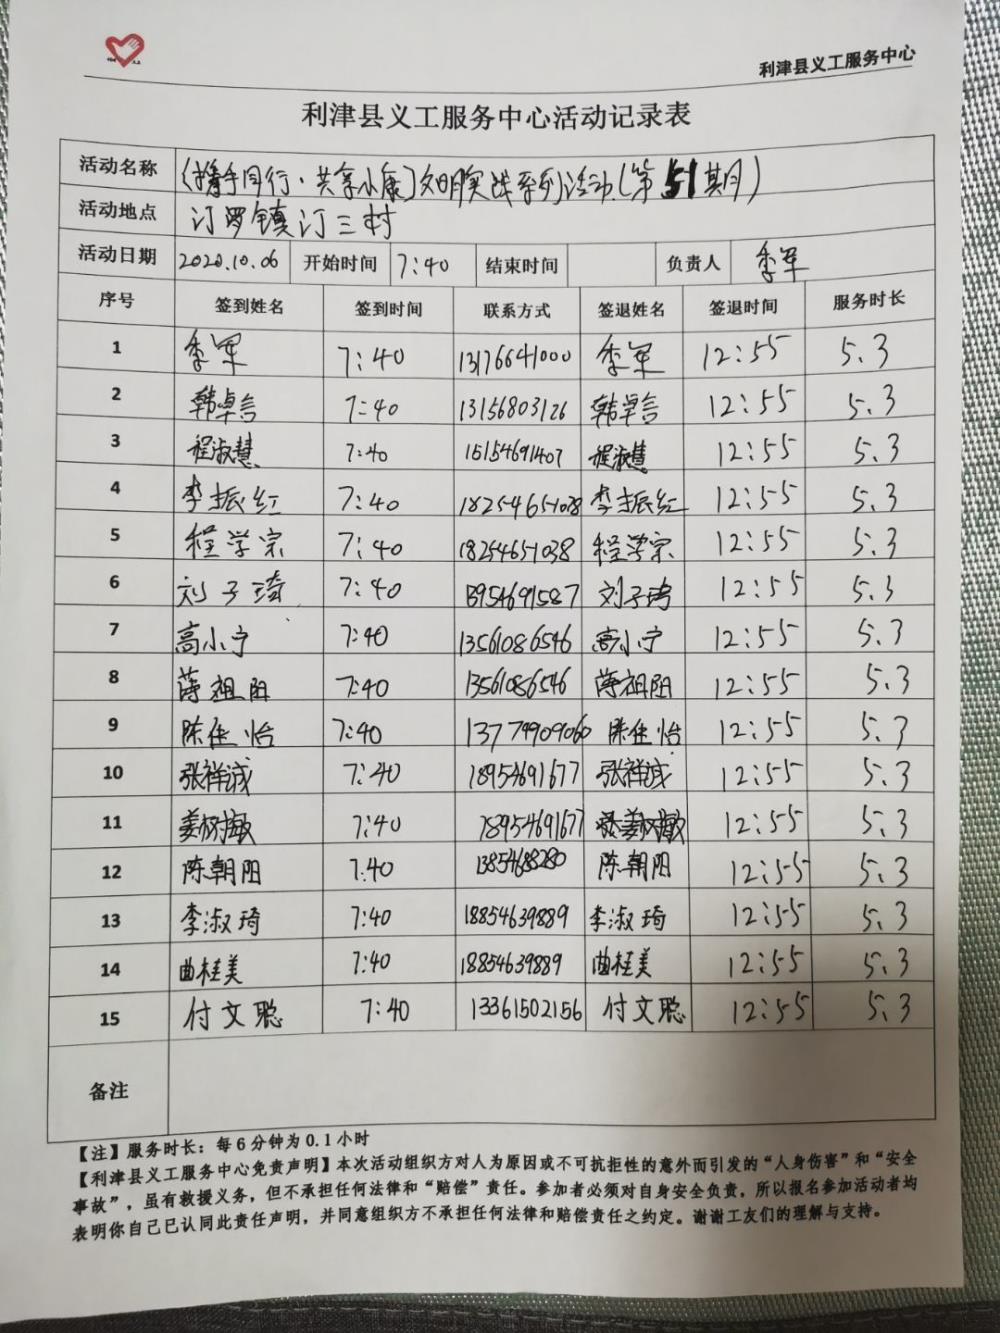 利津县义工服务中心
利津县义工服务中心活动记录表
活动名称 《携手同行·共享小康》文明实践系列活动(第51期)
活动地点 汀罗镇汀三村
活动日期 2020.10.06 开始时间 7:40 结束时间 负责人 季军
序号 签到姓名 签到时间 联系方式 签退姓名 签退时间 服务时长
1 季军 7:40 13176641000 季军 12:55 5.3
2 韩卓言 7:40 13156803126 韩卓言 12:55 5.3
3 程淑慧 7:40 15154691407 程淑慧 12:55 5.3
4 李振红 7:40 18254651038 李振红 12:55 5.3
5 程学宗 7:40 18254651038 程学宗 12:55 5.3
6 刘子琦 7:40 13954691587 刘子琦 12:55 5.3
7 高小宁 7:40 13561086546 高小宁 12:55 5.3
8 蒋祖阳 7:40 13561086546 蒋祖阳 12:55 5.3
9 陈佳怡 7:40 13779909060 陈佳怡 12:55 5.3
10 张祥诚 7:40 18954691677 张祥诚 12:55 5.3
11 7:40 18954691677 12:55 5.3
12 陈朝阳 7:40 陈朝阳 12:55 5.3
13 李淑琦 7:40 18854639889 李淑琦 12:55 5.3
14 曲桂美 7:40 18854639889 曲桂美 12:55 5.3
15 付文聪 7:40 13361502156 付文聪 12:55 5.3
备注
【注】服务时长：每6分钟为0.1小时
【利津县义工服务中心免责声明】本次活动组织方对人为原因或不可抗拒性的意外而引发的“人身伤害”和“安全
事故”，虽有救援义务，但不承担任何法律和“赔偿”责任。参加者必须对自身安全负责，所以报名参加活动者均
表明你自己已认同此责任声明，并同意组织方不承担任何法律和赔偿责任之约定。谢谢工友们的理解与支持。